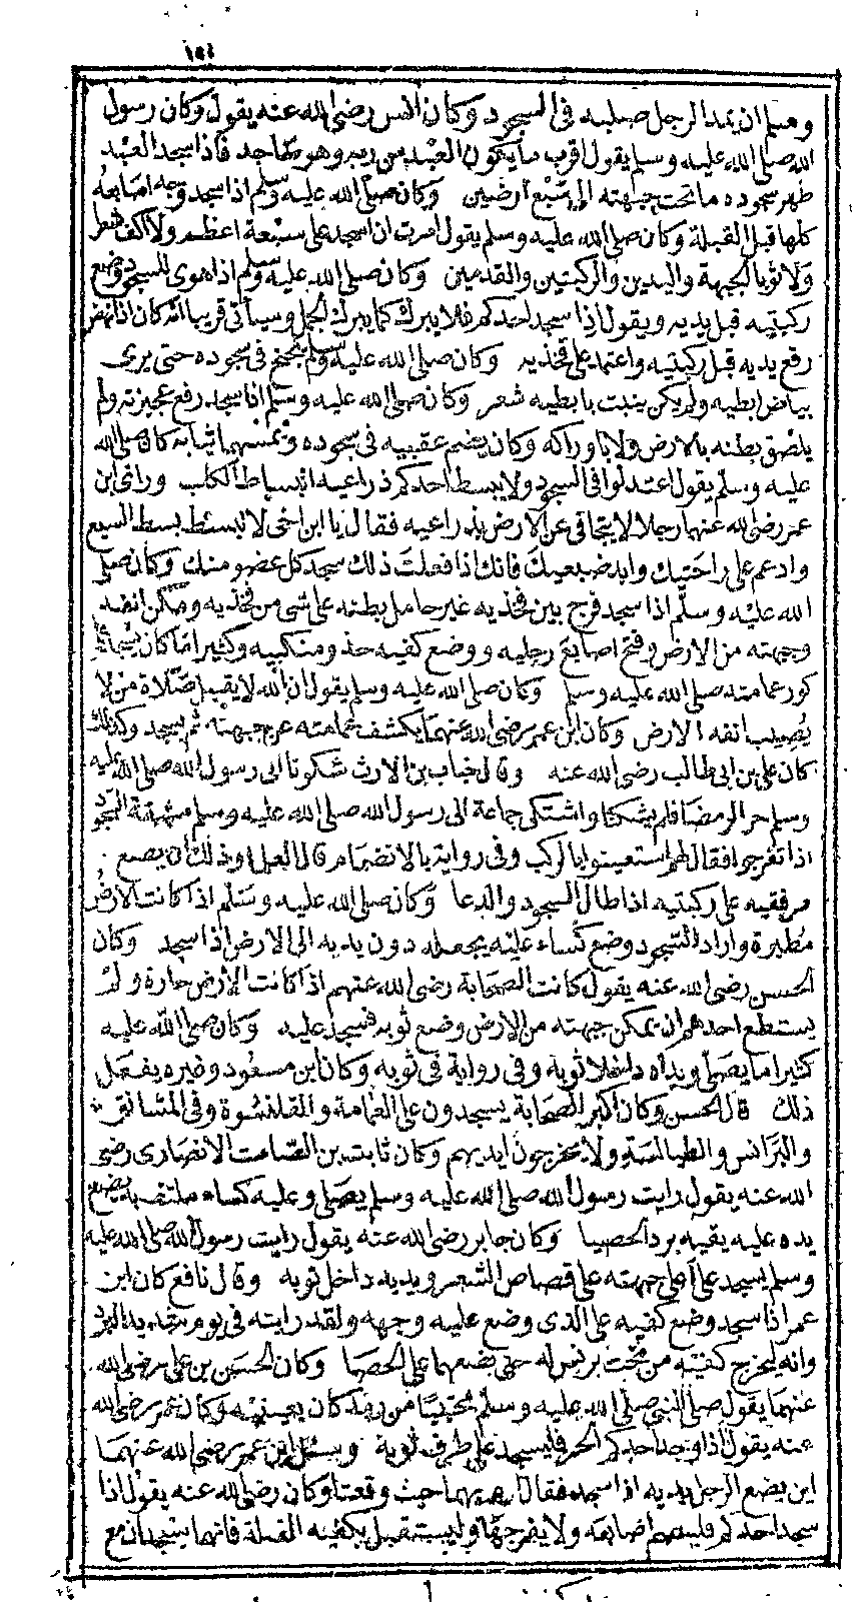 وسلم ان يمد الرجل صلبه في السجود وكان انس رضى الله عنه يقول وكان رسول
الله صلى الله عليه وسلم يقول اقرب ما يكون العبد من ربه وهو ساجد فاذا سجد العبد
طهر سجوده ما تحت جبهته الى سبع ارضين وكان صلى الله عليه وسلم اذا سجد وجه اصابعه
كلها قبل القبلة وكان صلى الله عليه وسلم يقول امرت ان اسجد على سبعة اعظم ولا اكف شعرا
ولا ثوبا الجبهة واليدين والركبتين والقدمين وكان صلى الله عليه وسلم اذا هوى للسجود وضع
ركبتيه قبل يديه ويقول اذا سجد احدكم فلا يبرك كما يبرك الجمل وسيأتى قريبا انه كان اذا نهض
رفع يديه قبل ركبتيه واعتمد على فخذيه وكان صلى الله عليه وسلم يجنح في سجوده حتى يرى
بياض ابطيه ولم يكن ينبت بابطيه شعر وكان صلى الله عليه وسلم اذا سجد رفع عجيزته ولم
يلصق بطنه بالارض ولا باوراكه وكان يضم عقبيه في سجوده وكان صلى الله
عليه وسلم يقول اعتدلوا في السجود ولا يبسط احدكم ذراعيه انبساط الكلب وراى ابن
عمر رضى الله عنهما رجلا لا يتجافى عن الارض بذراعيه فقال يا ابن اخى لا تبسط بسط السبع
وادعم على راحتيك وابد ضبعيك فانك اذا فعلت ذلك سجد كل عضو منك وكان صلى
الله عليه وسلم اذا سجد فرج بين فخذيه غير حامل بطنه على شى من فخذيه ومكن انفه
وجبهته من الارض وفتح اصابع رجليه ووضع كفيه حذو منكبيه وكثيرا ما كان يسجد على
كور عمامته صلى الله عليه وسلم وكان صلى الله عليه وسلم يقول ان الله لا يقبل صلاة من لا
يصيب انفه الارض وكان ابن عمر رضى الله عنهما يكشف عمامته عن جبهته ثم يسجد وكذلك
كان على بن ابى طالب رضى الله عنه وقال خباب بن الارث شكونا الى رسول الله صلى الله عليه
وسلم حر الرمضا فلم يشكنا واشتكى جماعة الى رسول الله صلى الله عليه وسلم مشقة السجود
اذا تفرجوا فقال لهم استعينوا بالركب وفى رواية بالانضمام قال العلما وذلك ان يضع
مرفقيه على ركبتيه اذا طال السجود والدعا وكان صلى الله عليه وسلم اذا كانت الارض
مطيرة واراد السجود وضع كساء عليه يجعله دون يديه الى الارض اذا سجد وكان
الحسن رضى الله عنه يقول كانت الصحابة رضى الله عنهم اذا كانت الارض حارة ولم
يستطع احدهم ان يمكن جبهته من الارض وضع ثوبه فسجد عليه وكان صلى الله عليه
كثيرا ما يصلى ويداه داخل ثوبه وفى رواية في ثوبه وكان ابن مسعود وغيره يفعل
ذلك قال الحسن وكان اكبر الصحابة يسجدون على العمامة والقلنسوة وفى المساتق
والبرانس والطيالسة ولا يخرجون ايديهم وكان ثابت بن الصامت الانصارى رضى
الله عنه يقول رايت رسول الله صلى الله عليه وسلم يصلى وعليه كساء ملتف به يضع
يده عليه يقيه برد الحصبا وكان جابر رضى الله عنه يقول رايت رسول الله صلى الله عليه
وسلم يسجد على اعلى جبهته على قصاص الشعر ويديه داخل ثوبه وقال نافع كان ابن
عمر اذا سجد وضع كفيه على الذى وضع عليه وجهه ولقد رايته في يوم شديد البرد
وانه ليخرج كفيه من تحت برنس له حتى يضعهما على الحصبا وكان الحسن بن على رضى الله
عنهما يقول صلى النبى صلى الله عليه وسلم محتبيا من رمد كان بعينيه وكان عمر رضى الله
عنه يقول اذا وجد احدكم الحر فليسجد على طرف ثوبه وسئل ابن عمر رضى الله عنهما
اين يضع الرجل يديه اذا سجد فقال حيث وقعتا وكان رضى الله عنه يقول اذا
سجد احدكم فليضم اصابعه ولا يفرجها وليستقبل بكفيه القبلة فانهما يسجدان مع